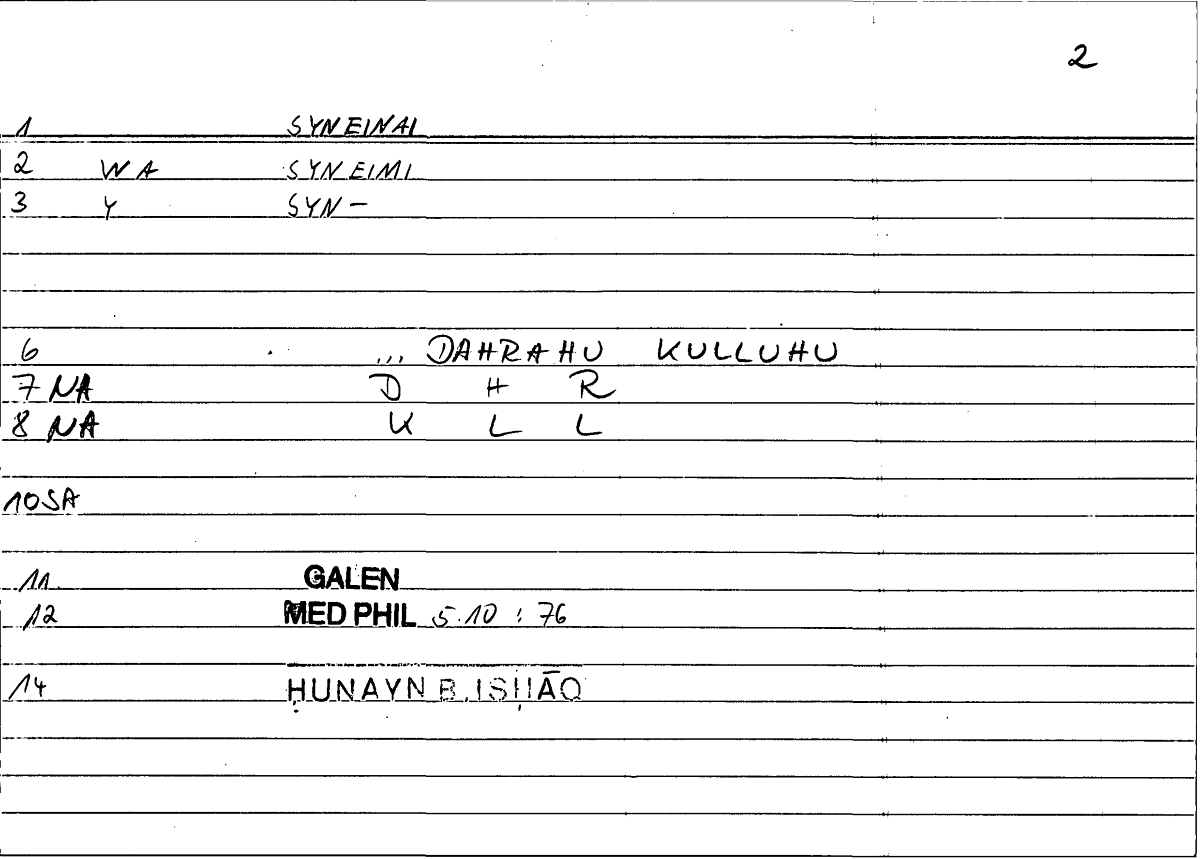 2
1 SYNEINAI
2 WA SYNEIMI
3 Y SYN-
6 ... DAHRAHU KULLUHU
7 NA D H R
8 NA K L L
10 SA
11. GALEN
12 MED PHIL 5.10 : 76
14 ḤUNAYN B. ISḤĀQ